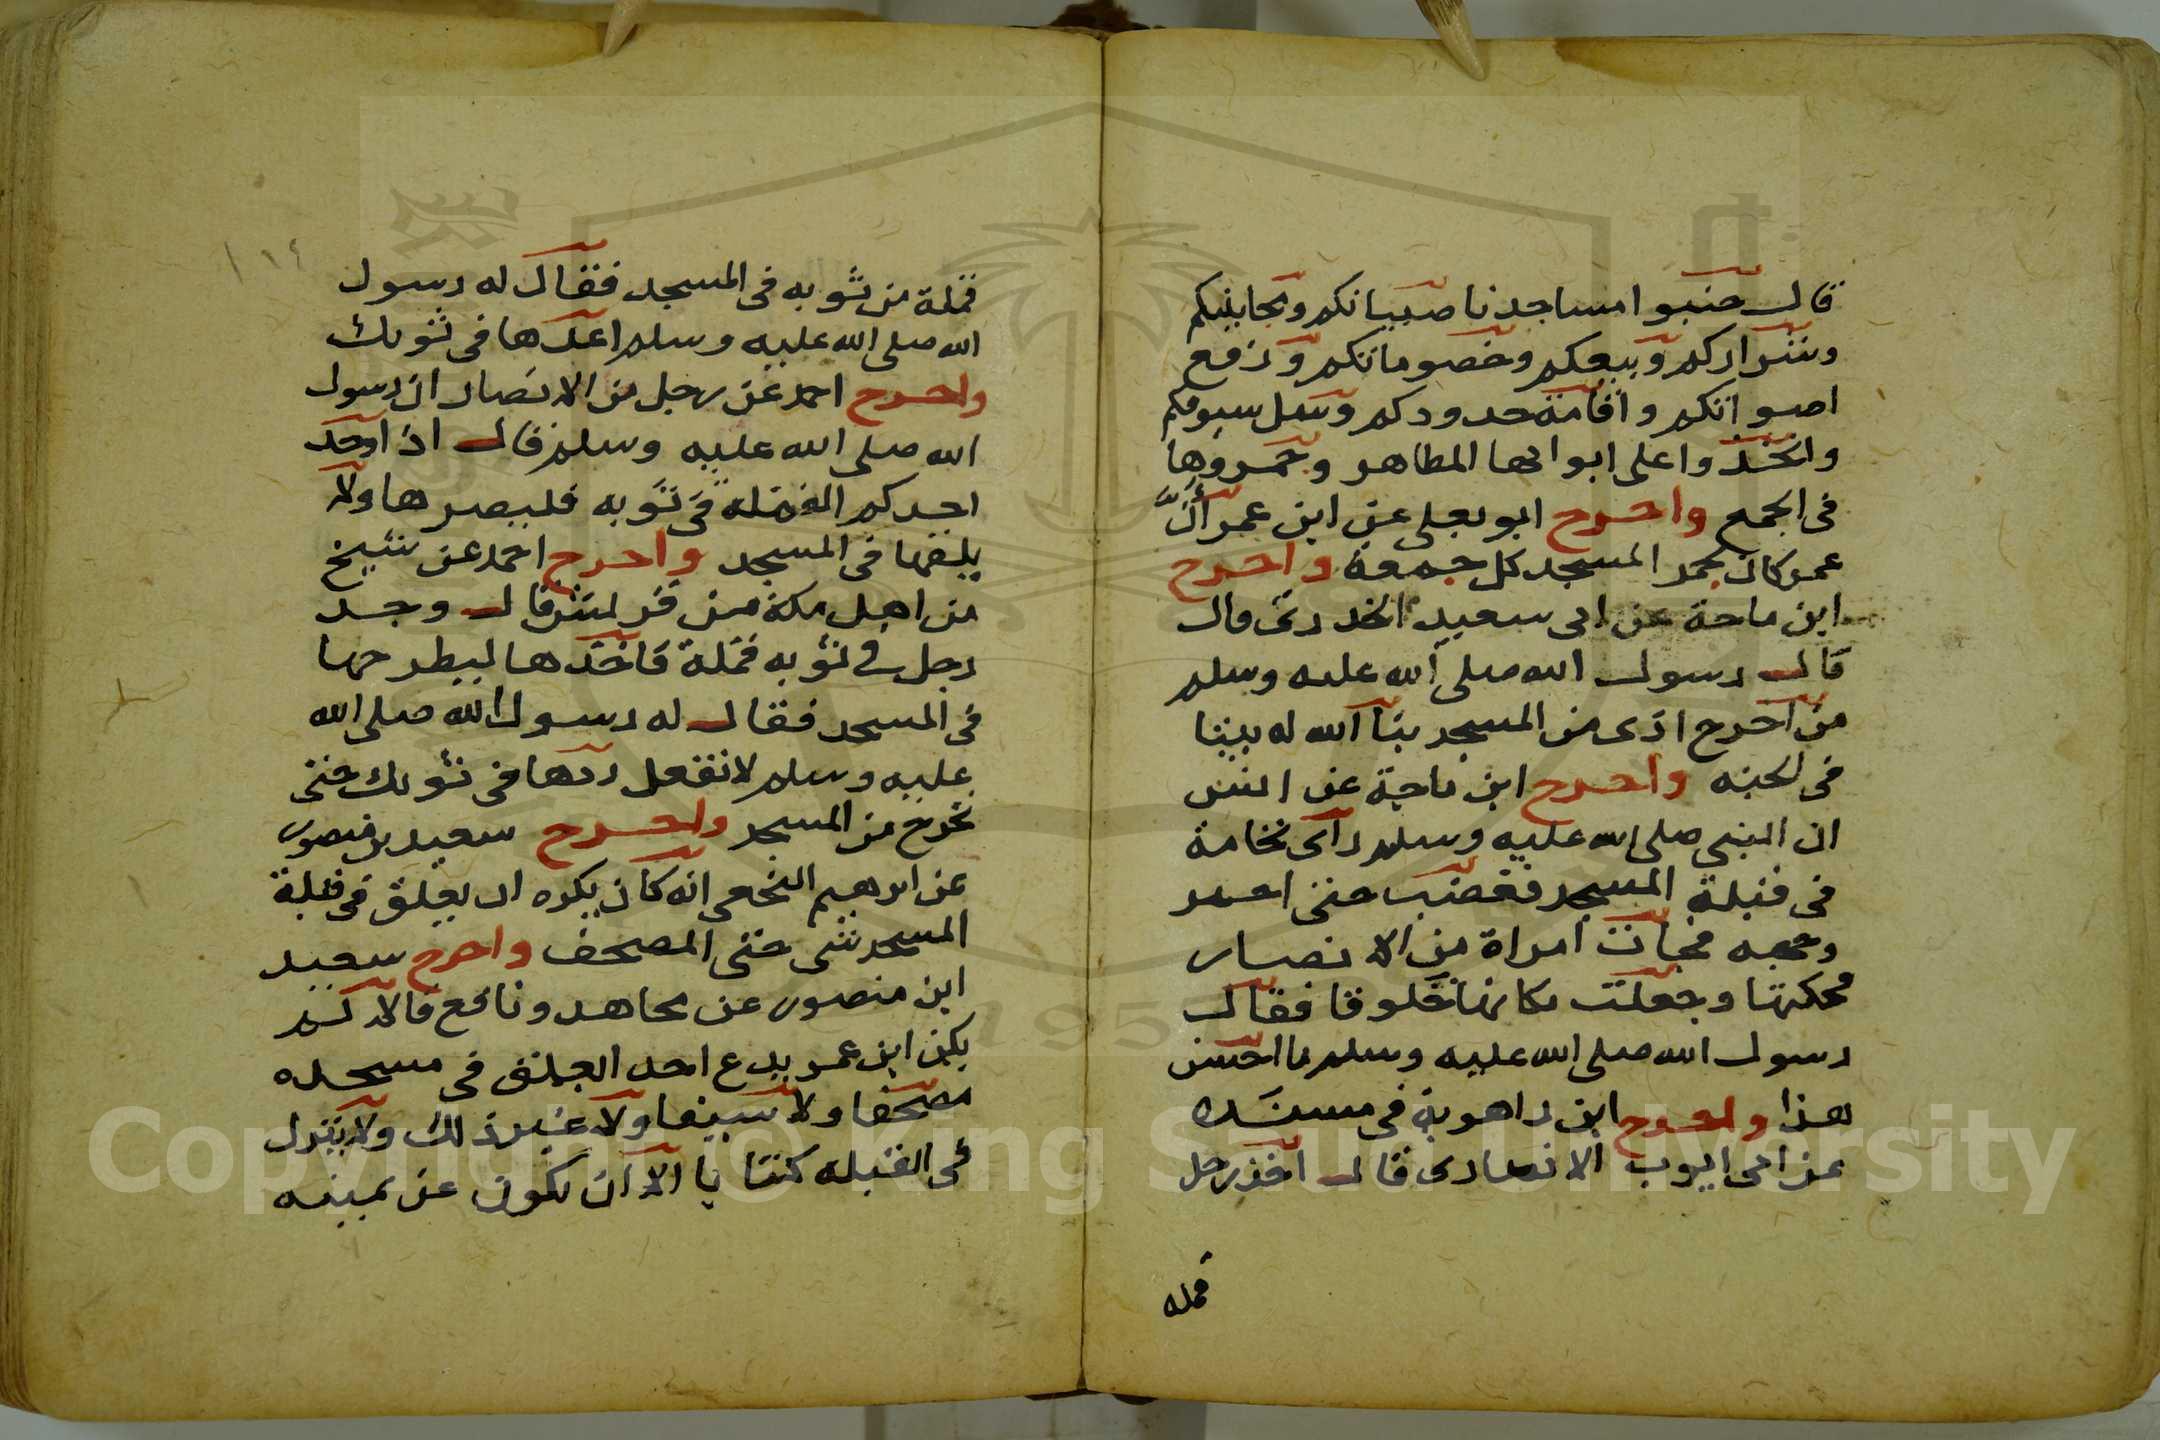 قال جنبوا مساجدنا صبيانكم ومجانينكم
وشراركم وبيعكم وخصوماتكم ورفع
اصواتكم واقامة حدودكم وسل سيوفكم
واتخذوا على ابوابها المطاهر وجمروها
فى الجمع واخرج ابو يعلى عن ابن عمر أنّ
عمر كان يجمر المسجد كل جمعة واخرج
ابن ماجة عن ابى سعيد الخدرى قال
قال رسول الله صلى الله عليه وسلم
من اخرج اذى من المسجد بنا الله له بيتا
فى الجنه واخرج ابن ماجة عن انس
ان النبي صلى الله عليه وسلم راى نخامة
فى قبلة المسجد فغضب حتى احمر
وجهه فجات امراة من الانصار
فحكتها وجعلت مكانها خلوقا فقال
رسول الله صلى الله عليه وسلم ما احسن
هذا واخرج ابن راهوية فى مسنده
عن ابى ايوب الانصارى قال اخذ رجل
قمله
١١٤
قملة من ثوبه فى المسجد فقال له رسول
الله صلى الله عليه وسلم اعدها فى ثوبك
واخرج احمد عن رجل من الانصار ان رسول
الله صلى الله عليه وسلم قال اذا وجد
احدكم القمله فى ثوبه فليصرها ولا
يلقها فى المسجد واخرج احمد عن شيخ
من اهل مكة من قريش قال وجد
رجل فى ثوبه قملة فاخذها ليطرحها
فى المسجد فقال له رسول الله صلى الله
عليه وسلم لا تفعل ردها فى ثوبك حتى
تخرج من المسجد واخرج سعيد بن منصور
عن ابرهيم النخعى انه كان يكره ان يعلق فى قبلة
المسجد شى حتى المصحف واخرج سعيد
ابن منصور عن مجاهد ونافع قالا لم
يكن ابن عمر يدع احد العلق فى مسجده
مصحفا ولا سيفا ولا غير ذلك ولا ينزل
فى القبله كتابا الا ان يكون عن يمينه